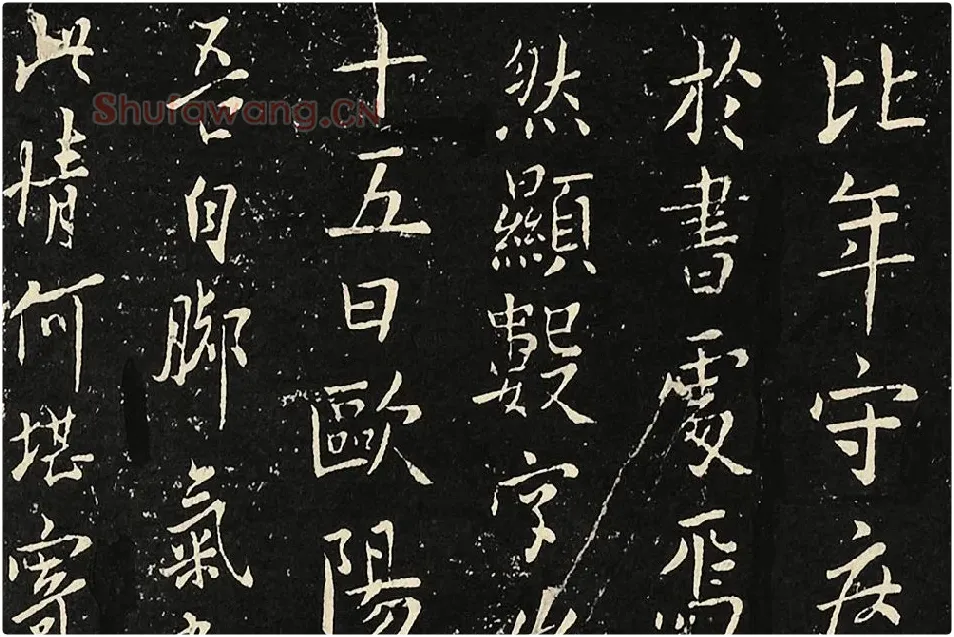 比年守疾
於書處焉
然顯數字
十五日歐陽
吾自脚氣
此情何堪寄
Shufawang.CN